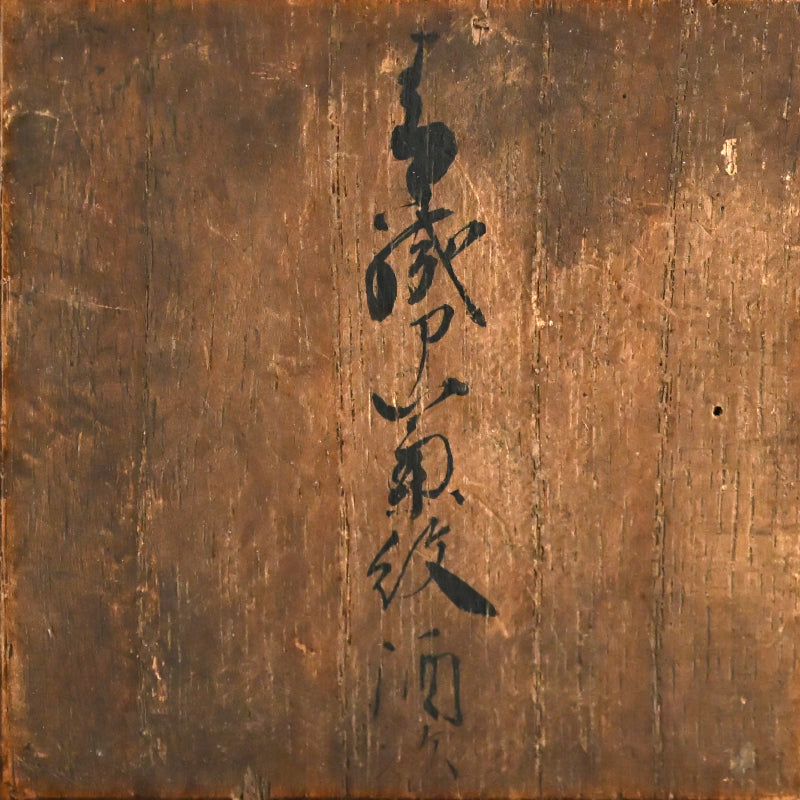 青織部菊紋酒次